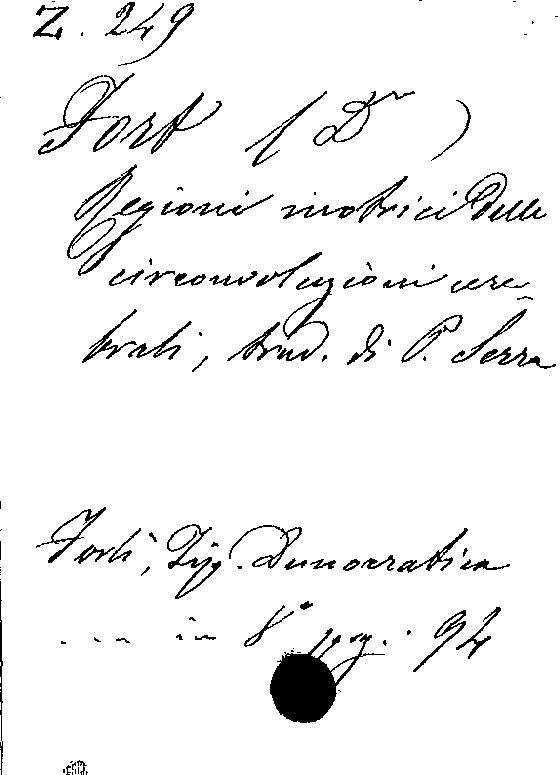 Z. 249
Fort (Dr )
Regioni motrici delle
circonvoluzioni cere-
brali, trad. di P. Serra
Forlì, Tip. Democratica
... in 8° pag. 94